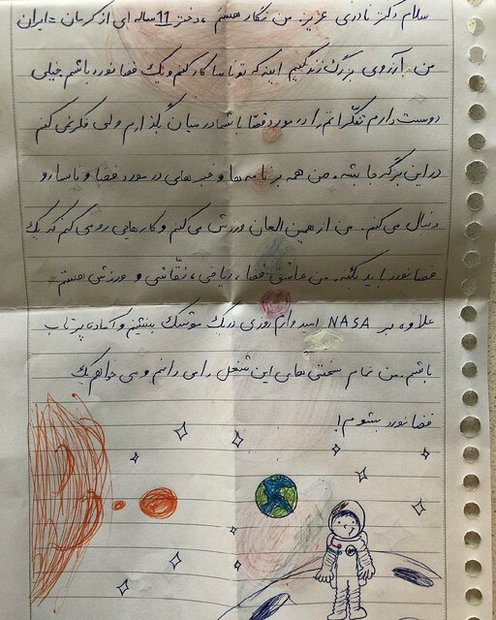 سلام دکتر نادری عزیز من نگار هستم ، دختر 11 ساله ای از کرمان - ایران
من آرزوی بزرگ زندگیم اینه که تو ناسا کار کنم و یک فضانورد باشم خیلی
دوست دارم تفکراتم را در مورد فضا با شما در میان بگذارم ولی فکر نمی کنم
در این برگه جا بشه. من همه برنامه ها و خبر های در مورد فضا و ناسا رو
دنبال می کنم. من از همین العان ورزش می کنم و کارهایی رو می کنم که یک
فضانورد باید بکنه. من عاشق فضا ، ریاضی ، نقّاشی و ورزش هستم.
علاوه بر NASA امیدوارم روزی در یک موشک بنشینم و آماده پرتاب
باشم. من تمام سختی های این شغل را می دانم و می خواهم یک
فضانورد بشوم!